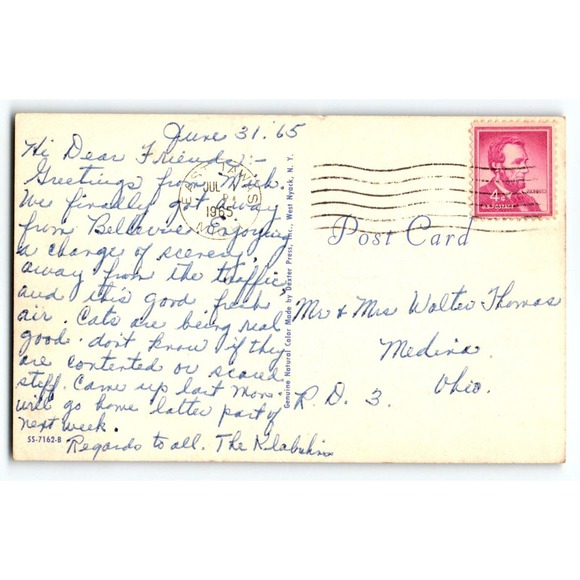 June 31 '65
Hi Dear Friends:-
Greetings from Mich.
We finally got away
from Bellevue. Enjoying
a change of scenery,
away from the traffic,
and this good fresh
air. Cats are being real
good. don't know if they
are contented or scared
stiff. Came up last Mon.
will go home latter part of
next week.
Regards to all. The
SS-7162-B
Genuine Natural Color Made by Dexter Press, Inc., West Nyack, N. Y.
JUL
1965
4¢
Post Card
Mr & Mrs Walter Thomas
Medina.
Ohio.
R. D. 3.